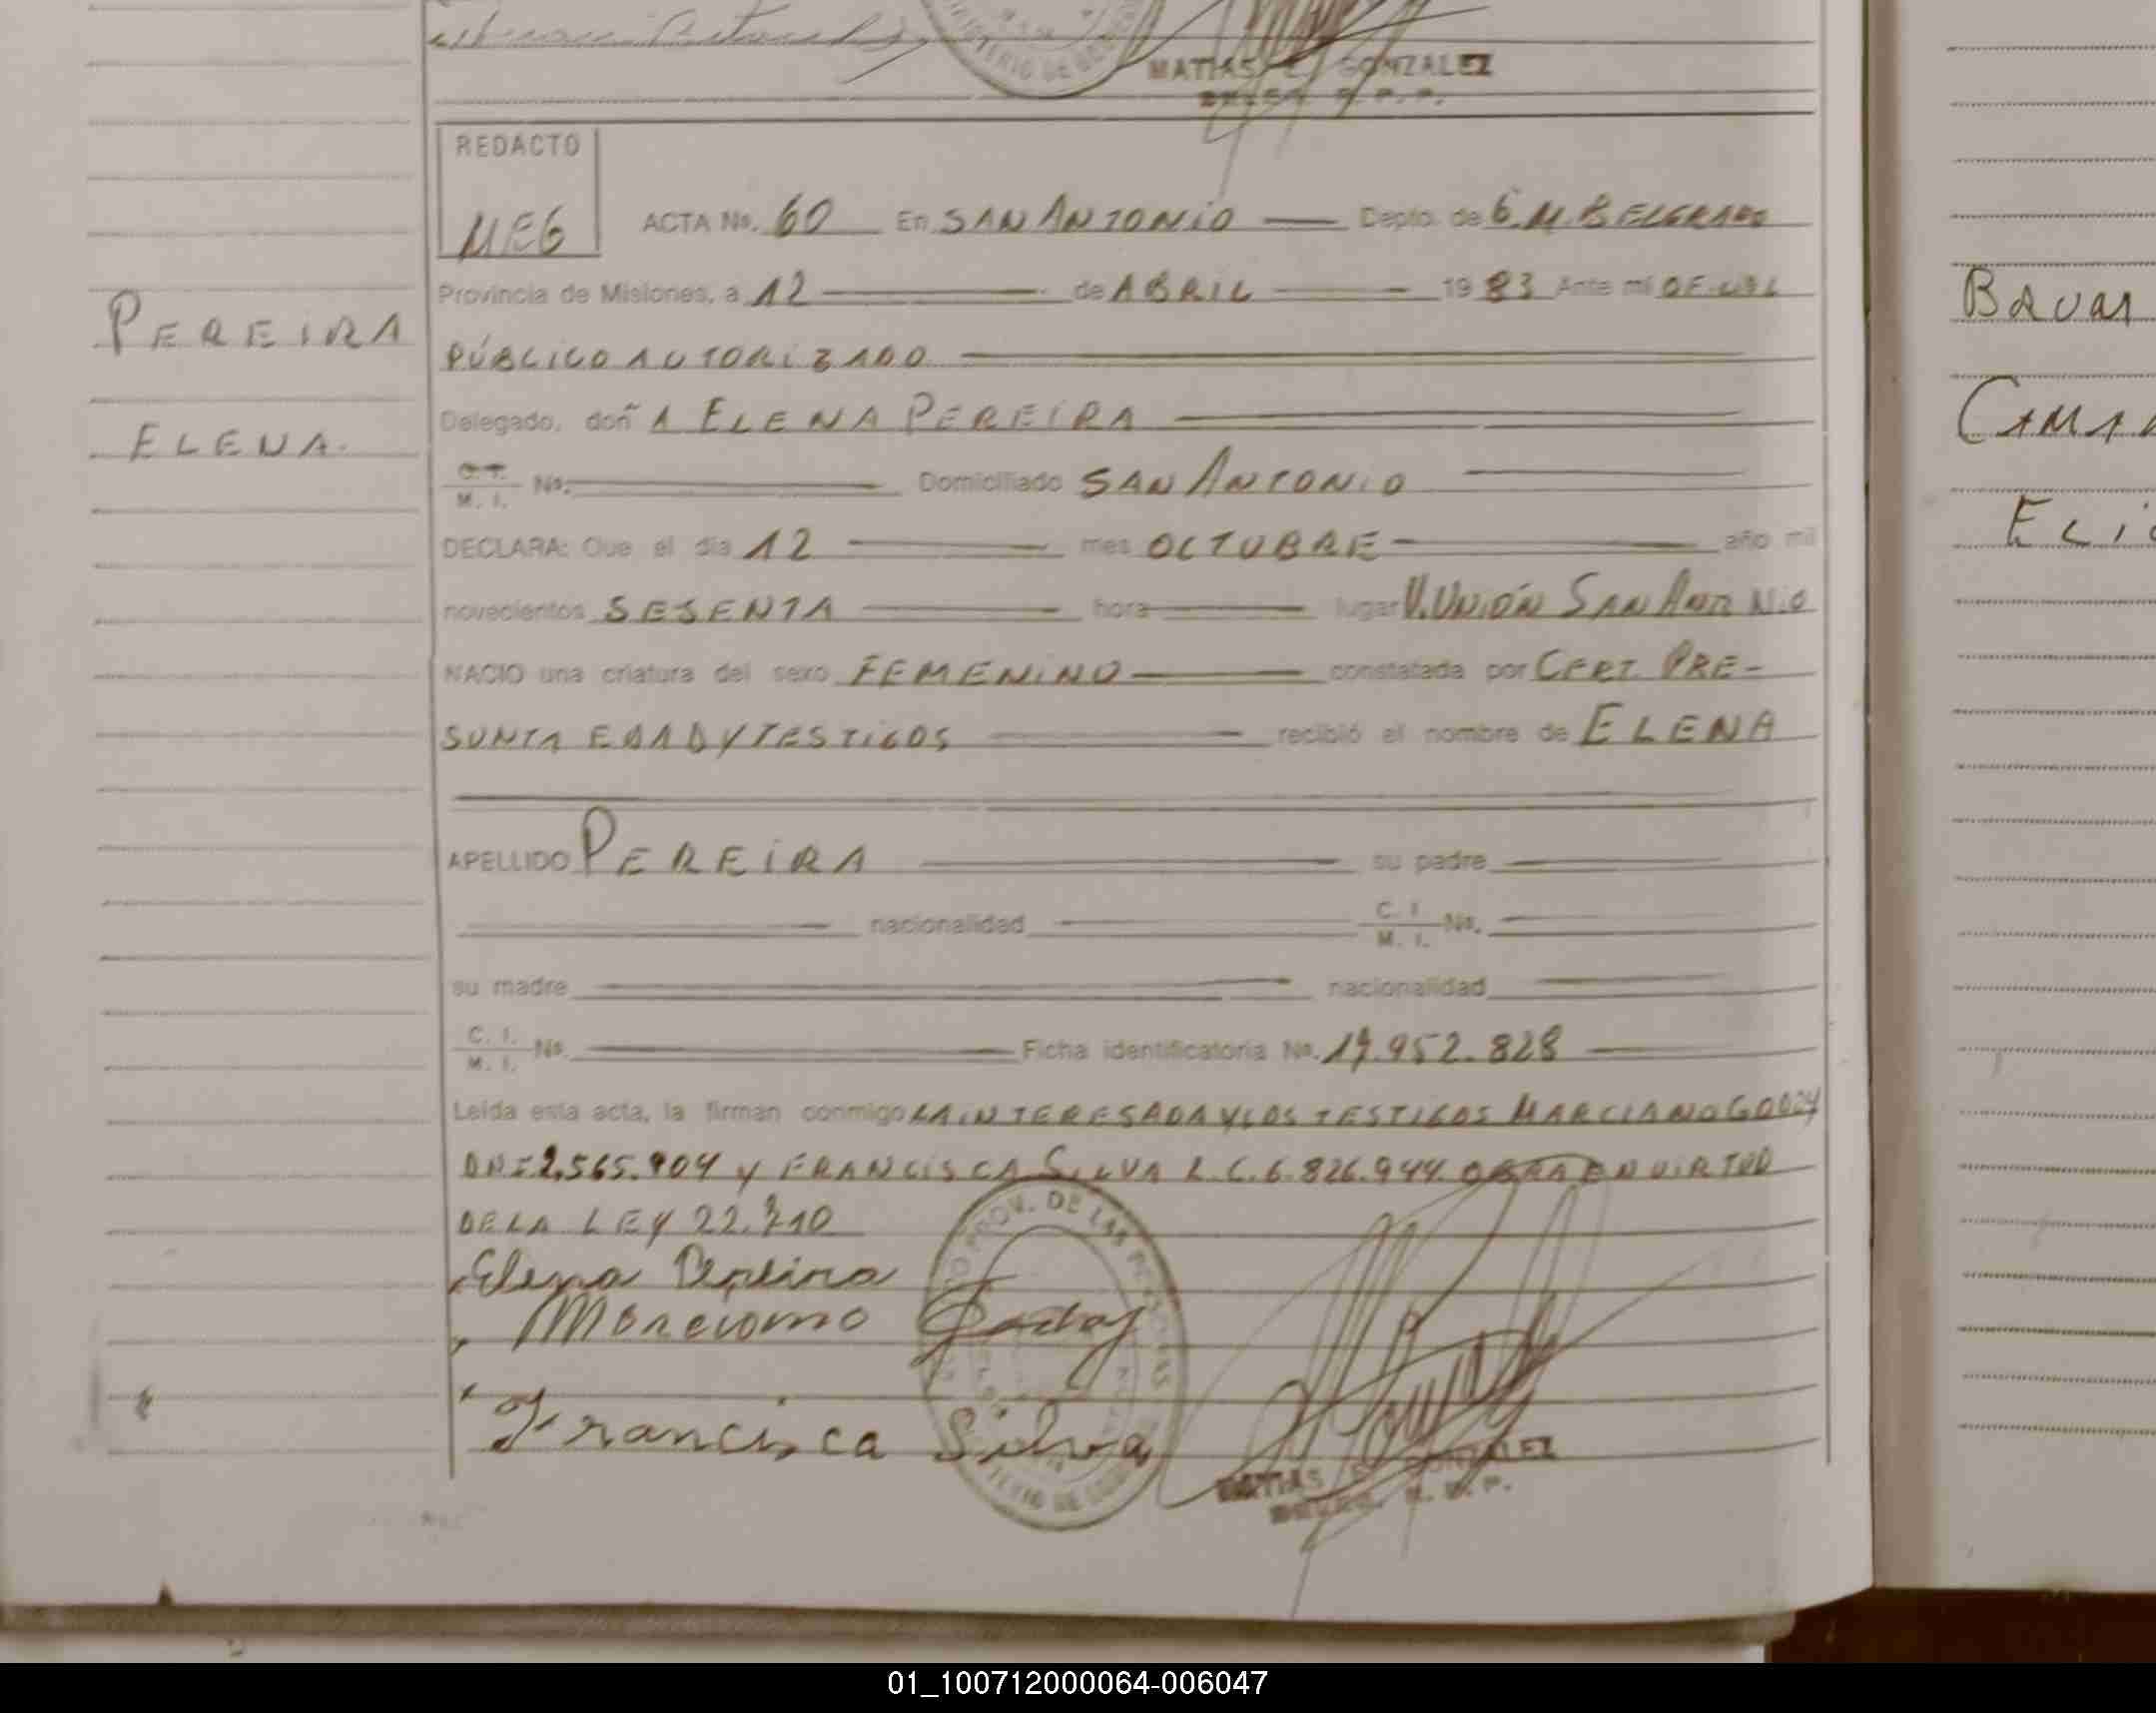 MATIAS E. GONZALEZ
REDACTO
MEG
ACTA No. 60 En SAN ANTONIO Depto. de G.M. BELGRANO
Provincia de Misiones, a 12 de ABRIL 1983 Ante mi OFICIAL
PÚBLICO AUTORIZADO
PEREIRA
Delegado, doñA ELENA PEREIRA
ELENA.
C. I. / M. I. No. Domiciliado SAN ANTONIO
DECLARA: Que el día 12 mes OCTUBRE año mil
novecientos SESENTA hora lugar V. UNIÓN SAN ANTONIO
NACIO una criatura del sexo FEMENINO constatada por CERT. PRE-
SUNTA EDAD Y TESTIGOS recibió el nombre de ELENA
APELLIDO PEREIRA su padre
nacionalidad C. I. / M. I. No.
su madre nacionalidad
C. I. / M. I. No. Ficha identificatoria No. 17.952.828
Leída esta acta, la firman conmigo LA INTERESADA Y LOS TESTIGOS MARCIANO GODOY
DNI 2.565.904 Y FRANCISCA SILVA L.C. 6.826.944. OBRA EN VIRTUD
DE LA LEY 22.710
Elena Pereira
Marciano Godoy
Francisca Silva
MATIAS E. GONZALEZ
PROV. DE LAS PERSONAS
CAMA
ELI
01_100712000064-006047